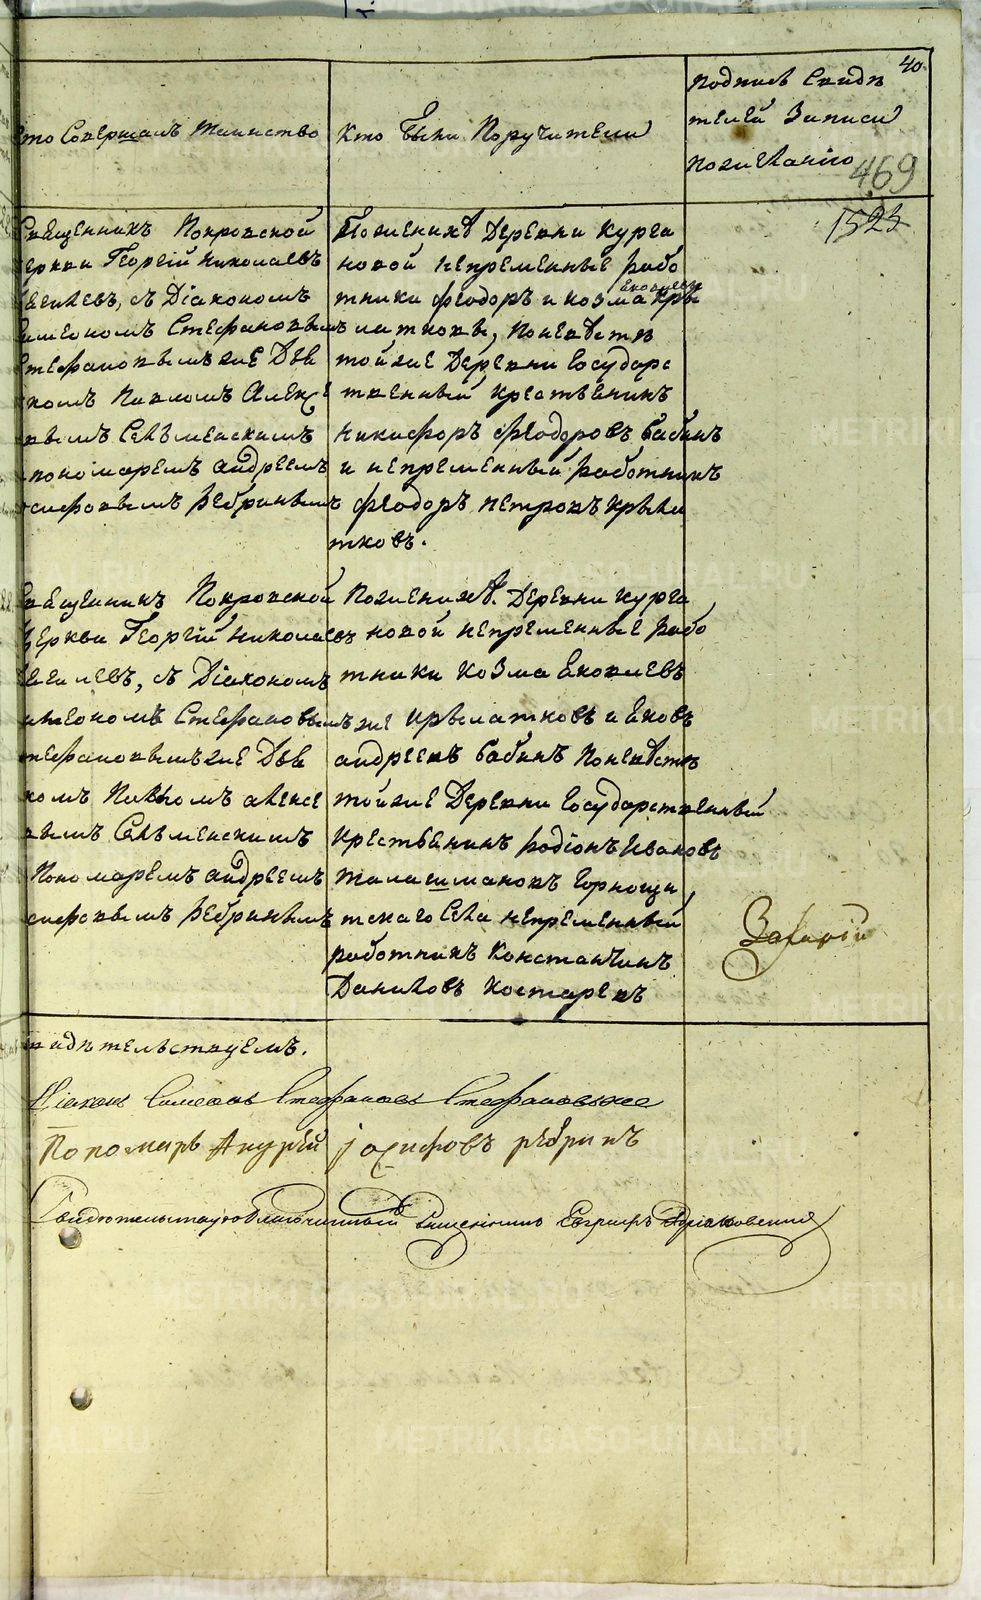 40
Кто Совершалъ таинство
Кто были Поручители
Подпись Свидѣ
телей Записи
по желанію
469
1523
Священникъ Покровской
Церкви Георгій Николаевъ
съ Діакономъ
Симеономъ Стефановымъ
Стефановымъ же Дья
комъ Павломъ Алексѣ
вымъ Селъменскимъ
пономаремъ андреемъ
осифовымъ Рѣбринымъ
По женихѣ Деревни Курга
новой непременные рабо
тники Феодоръ и козма Яковлевы Кры
латковы, по невѣстѣ
той же Деревни Государс
твенный крестьянинъ
Никифоръ Феодоровъ бабинъ
и непременный работникъ
Феодоръ Петровъ Крыла
тковъ.
Священникъ Покровской
Церкви Георгій Николаевъ
съ Діакономъ
Симеономъ Стефановымъ
Стефановымъ же Дья
комъ Павломъ алексе
вымъ Селъменскимъ
Пономаремъ андреемъ
осифовымъ Рѣбринымъ
По женихѣ. Деревни Курга
новой непременные рабо
тники Козма Яковлевъ
Крылатковъ и Яковъ
андреевъ бабинъ По невѣстѣ
той же Деревни Государственный
Крестьянинъ Родіонъ Ивановъ
Талашмановъ Горнощи
тскаго Села непременный
работникъ Константинъ
Даниловъ Костаревъ
свидѣтельствуемъ.
Діаконъ Симеонъ Стефановъ Стефановыхъ
Пономарь Андрей Іосифовъ рѣбринъ
Свидѣтельствую благочинный Священникъ Евграфъ
METRIKI.GASO-URAL.RU